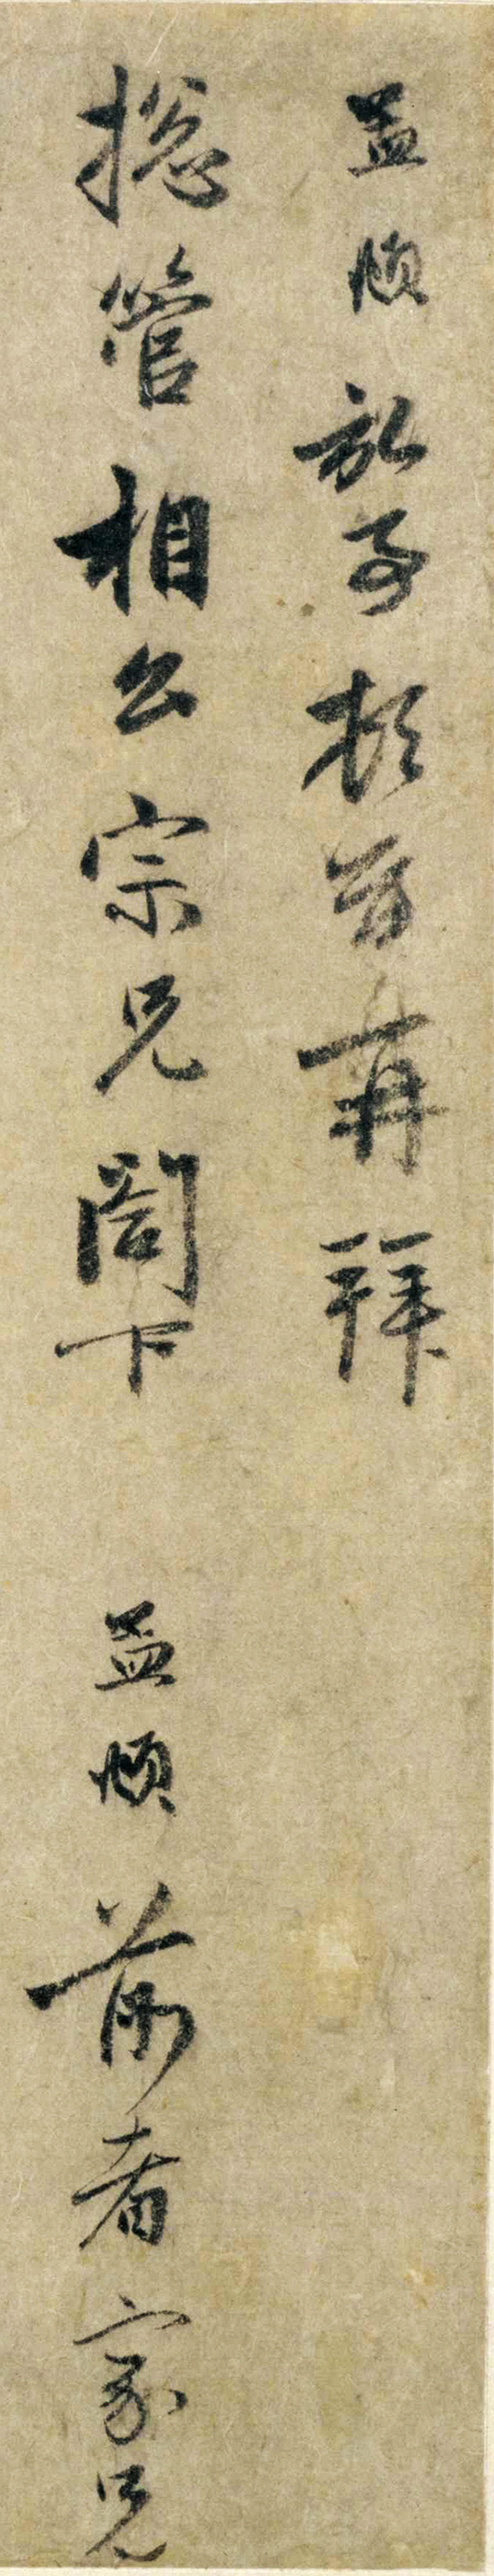 孟頫記事頓首再拜
捴管相公宗兄閤下　孟頫前者家兄